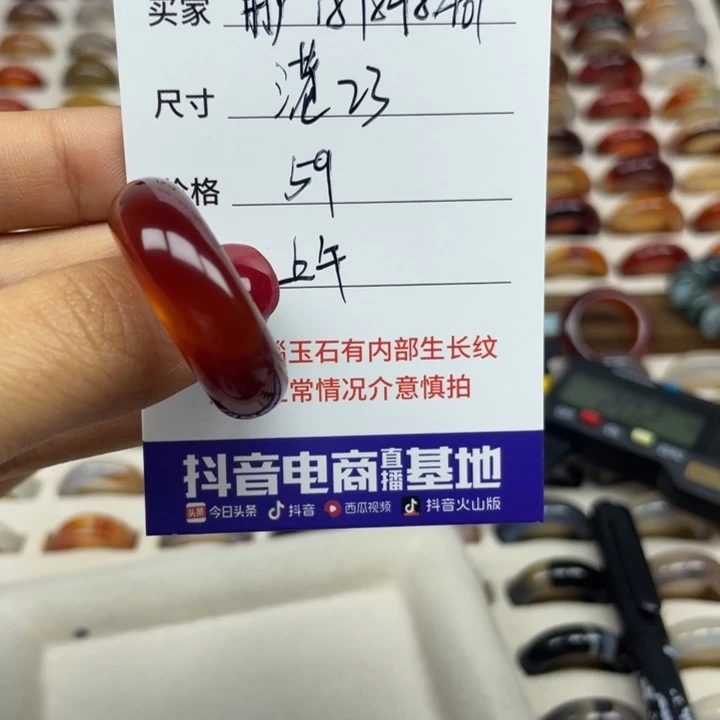 买家
尺寸 港23
价格 59
上午
玉石有内部生长纹
正常情况介意慎拍
抖音电商直播基地
头条 今日头条 抖音 西瓜视频 抖音火山版